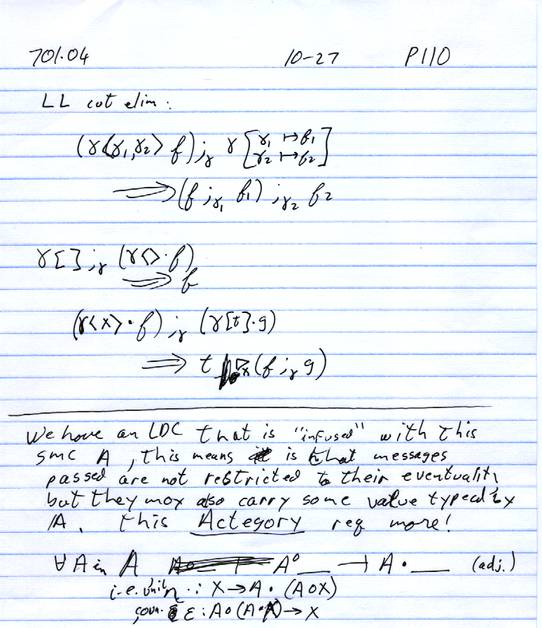 701.04 10-27 P110
LL cut elim:
(γ⟨γ₁,γ₂⟩ f) ;γ γ [γ₁ ↦ f₁
γ₂ ↦ f₂]
⟹ (f ;γ₁ f₁) ;γ₂ f₂
γ[] ;γ (γ⟨⟩·f)
⟹ f
(γ⟨x⟩·f) ;γ (γ[t]·g)
⟹ t ▷x (f ;γ g)
We have an LDC that is "infused" with this
smc A, this means is that messages
passed are not restricted to their eventuality
but they may also carry some value typed by
A. This Actegory req more!
∀ A in A A∘__ ⊣ A•__ (adj.)
i.e. unit η : X → A•(A∘X)
coun. ε : A∘(A•X) → X